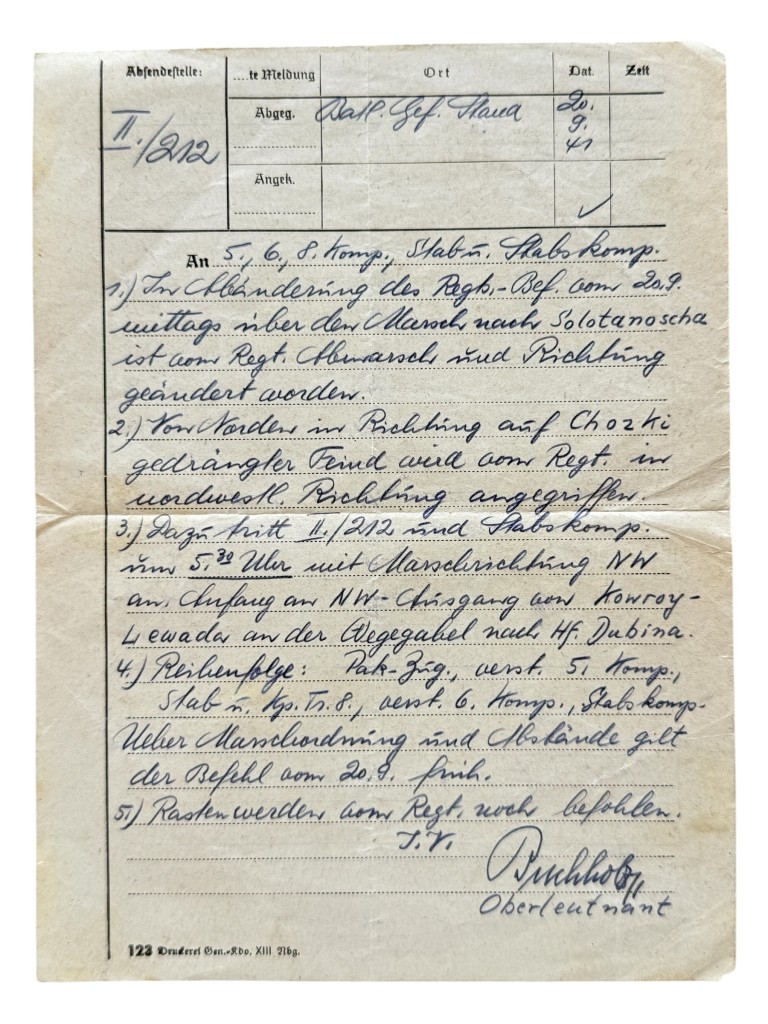 Absendestelle: ....te Meldung Ort Dat. Zeit
II./212 Abgeg. Batl. Gef. Stand 20.
9.
41
Angek.
✓
An 5., 6., 8. Komp., Stab u. Stabskomp.
1.) In Abänderung des Regts.-Bef. vom 20.9.
mittags über den Marsch nach Solotanoscha
ist vom Regt. Abmarsch und Richtung
geändert worden.
2.) Von Norden in Richtung auf Chozki
gedrängter Feind wird vom Regt. in
nordwestl. Richtung angegriffen.
3.) Dazu tritt II./212 und Stabskomp.
um 5.30 Uhr mit Marschrichtung NW
an. Anfang am NW-Ausgang von Kowroy-
Lewada an der Wegegabel nach Hf. Dubina.
4.) Reihenfolge: Pak-Zug., verst. 5. Komp.,
Stab u. Kp. Tr. 8., verst. 6. Komp., Stabskomp.
Ueber Marschordnung und Abstände gilt
der Befehl vom 20.9. früh.
5.) Rasten werden vom Regt. noch befohlen.
I.V.
Buchholz
Oberleutnant
123 Druckerei Gen.-Kdo. XIII Nbg.